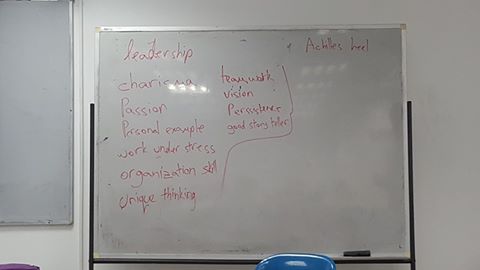 leadership
Achilles heel
charisma
Passion
Personal example
work under stress
organization skill
unique thinking
teamwork
vision
Persistence
good story teller